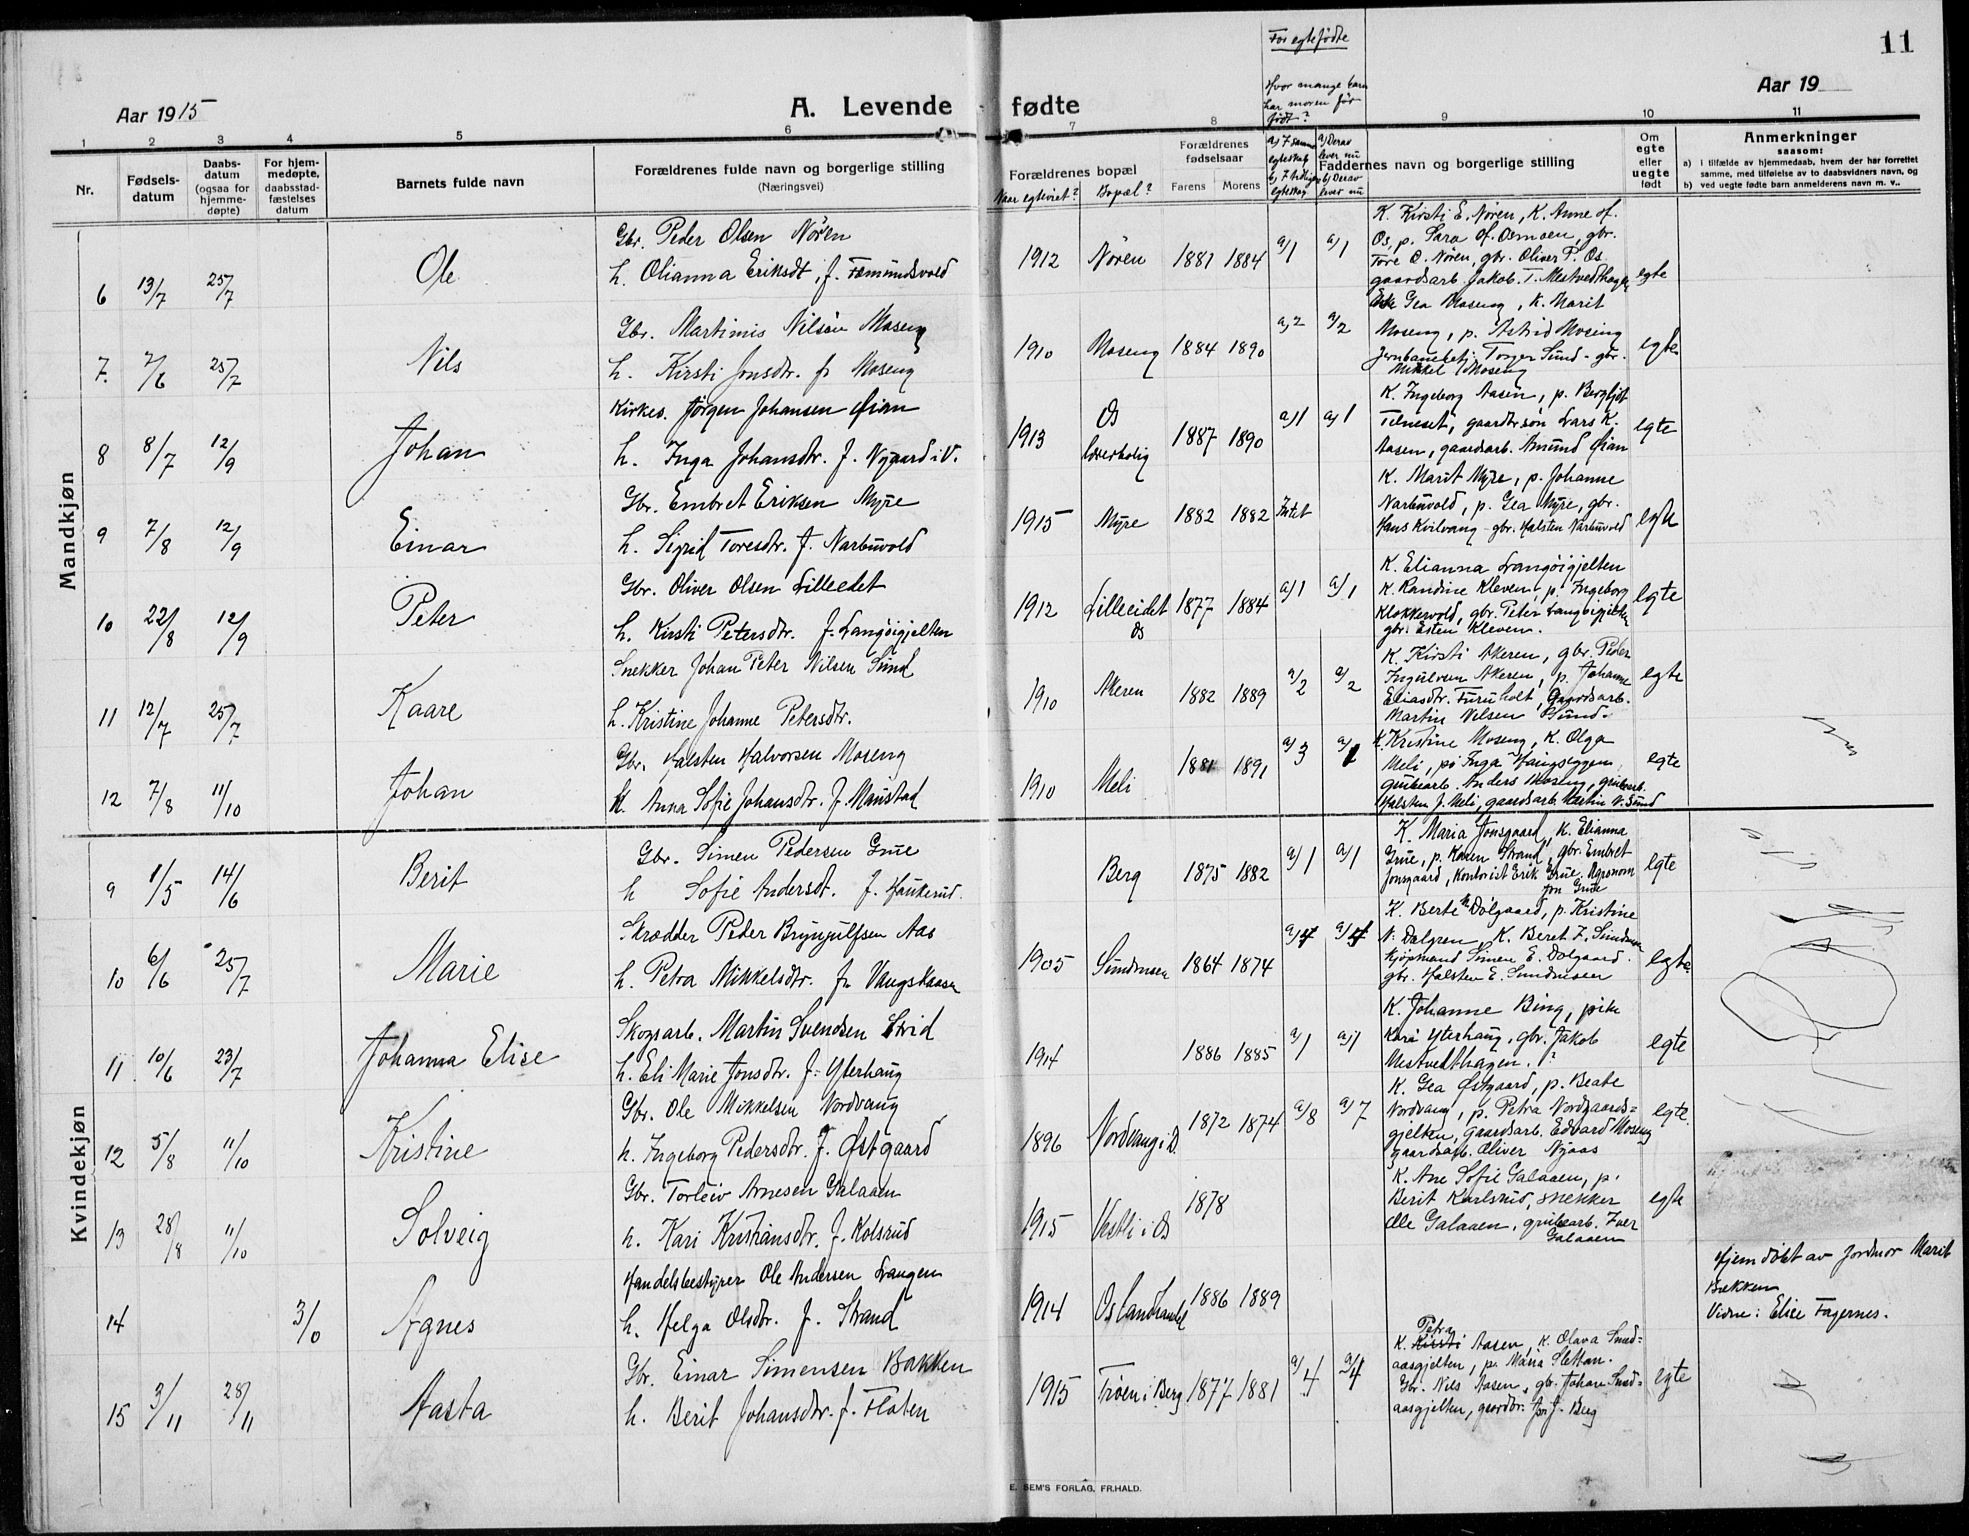 11
For egtefødte
Hvor mange barn
har moren før
født?
Aar 1915
A. Levende fødte
Aar 19
1 2 3 4 5 6 7 8 9 10 11
Nr.
Fødsels-
datum
Daabs-
datum
(ogsaa for
hjemme-
døpte)
For hjem-
medøpte,
daabsstad-
fæstelses
datum
Barnets fulde navn
Forældrenes fulde navn og borgerlige stilling
(Næringsvei)
Forældrenes bopæl
Naar egteviet? Bopæl?
Forældrenes
fødselsaar
Farens Morens
a) I samme
egteskab
b) I tidligere
egteskap
a) Derav
lever nu
b) Derav
lever nu
Faddernes navn og borgerlige stilling
Om
egte
eller
uegte
født
Anmerkninger
saasom:
a) i tilfælde av hjemmedaab, hvem der har forrettet
samme, med tilføielse av to daabsvidners navn, og
b) ved uegte fødte barn anmelderens navn m. v..
Mandkjøn
6 13/7 25/7 Ole
Gbr. Peder Olsen Nören
h. Olianna Eriksdt. f. Femundsvold
1912 Nören 1881 1884 a/1 a/1
K. Kirsti E. Nören, K. Anne of.
Os, p. Sara of. Osmoen, gbr.
Tore O. Nören, gbr. Oliver P. Os
gaardsarb. Jakob T. Mestvedthagen
egte
7. 2/6 25/7 Nils
Gbr. Martinus Nilsen Moseng
h. Kirsti Jonsdtr. f. Moseng
1910 Moseng 1884 1890 a/2 a/2
Gea Moseng, K. Marit
Moseng, p. Astrid Moseng
Jernbanebetj. Torger Sund - gbr.
Mikkel Moseng
egte
8 8/7 12/9 Johan
Kirkes. Jørgen Johansen Øian
h. Inga Johansdtr. f. Nygaard i V.
1913 Os Lærerbolig 1887 1890 a/1 a/1
K. Ingeborg Aasen, p. Bergljot
Telneset, gaardbr.søn Lars K.
Aasen, gaardsarb. Amund Øian
egte
9 7/8 12/9 Einar
Gbr. Embret Eriksen Myre
h. Sigrid Toresdtr. f. Narbuvold
1915 Myre 1882 1882 Intet
K. Marit Myre, p. Johanne
Narbuvold, p. Gea Myre, gbr.
Hans Kvilvang - gbr. Halsten Narbuvold
egte
10 22/8 12/9 Peter
Gbr. Oliver Olsen Lilleeidet
h. Kirsti Petersdtr. f. Langöigjelten
1912 Lilleeidet Os 1877 1884 a/1 a/1
K. Elianna Langöigjelten
K. Randine Kleven, p. Ingeborg
Klokkervold, gbr. Peter Langöigjelten
gbr. Esten Kleven.
egte
11 12/7 25/7 Kaare
Snekker Johan Peter Nilsen Sund
h. Kristine Johanne Petersdtr.
1910 Akeren 1882 1889 a/2 a/2
K. Kirsti Akeren, gbr. Peder
Ingulvsen Akeren, p. Johanne
Eliasdtr. Furuholt, Gaardsarb.
Martin Nilsen Sund.
egte
12 7/8 11/10 Johan
Gbr. Halsten Halvorsen Moseng
h. Anna Sofie Johansdtr. f. Maustad
1910 Meli 1881 1891 a/3 a/1
K. Kristine Moseng, K. Olga
Meli, pi. Inga Haugseggen
grubearb. Anders Moseng, grubearb.
Halsten J. Meli, gaardsarb. Martin N. Sund
egte
Kvindekjøn
9 1/5 14/6 Berit
Gbr. Simen Pedersen Grue
h Sofie Andersdt. f. Haukerud.
Berg 1875 1882 a/1 a/1
K. Maria Jonsgaard, K. Elianna
Grue, p. Karen Strand, gbr. Embret
Jonsgaard, Kontorist Erik Grue, Agronom
Jon Grue
egte
10 6/6 25/7 Marie
Skrædder Peder Brynjulfsen Aas
h. Petra Mikkelsdtr. f. Vangskaasen
1905 Sundmoen 1864 1874 a/4 a/4
K. Berte Dölgaard, p. Kristine
N. Dalgren, K. Beret
Kjøpmand Simen E. Dolgaard.
gbr. Halsten E. Sundmoen
egte
11 10/6 23/7 Johanna Elise
Skogsarb. Martin Svendsen Strid
h. Eli Marie Jonsdtr. f. Ytterhaug
1914 1886 1885 a/1 a/1
K. Johanne Bing, pike
Kari Ytterhaug, gbr. Jakob
Mestvedthagen. 1?
egte
12 5/8 11/10 Kristine
Gbr. Ole Mikkelsen Nordvang
h. Ingeborg Pedersdtr. f. Østgaard
1896 Nordvang i D. 1872 1874 a/8 a/7
K. Gea Østgaard, p. Beate
Nordvang, p. Petra Nordgaards=
gjelten, Gaardsarb. Edvard Moseng
gaardsarb. Oliver Nyaas
egte.
13 28/8 11/10 Solveig
Gbr. Torleiv Arnesen Galaaen
h. Kari Kristiansdtr. f. Kolsrud
1915 Vestli i Os 1878
K. Ane Sofie Galaaen, p.
Berit Karlsrud, snekker
Ole Galaaen, grubearb. Iver
Galaaen
egte
14 3/0 Agnes
Handelsbestyrer Ole Andersen Langen
h. Helga Olsdtr. f. Strand
1914 Os Landhandel 1886 1889
Hjemdöbt av Jordmor Marit
Bækken
Vidne: Elise Fagernes.
15 3/11 28/11 Aasta
Gbr. Einar Simensen Bakken
h. Berit Johansdtr. f. Floten
1915 Trøen i Berg 1877 1881 a/4 a/4
Petra
K. Kirsti Aasen, K. Olava Smed=
aasgjelten, p. Maria Slettan.
Gbr. Nils Aasen, gbr. Johan Smed=
aasgjelten, gaardbr. Jon J. Berg
egte
E. SEM'S FORLAG, FR.HALD.